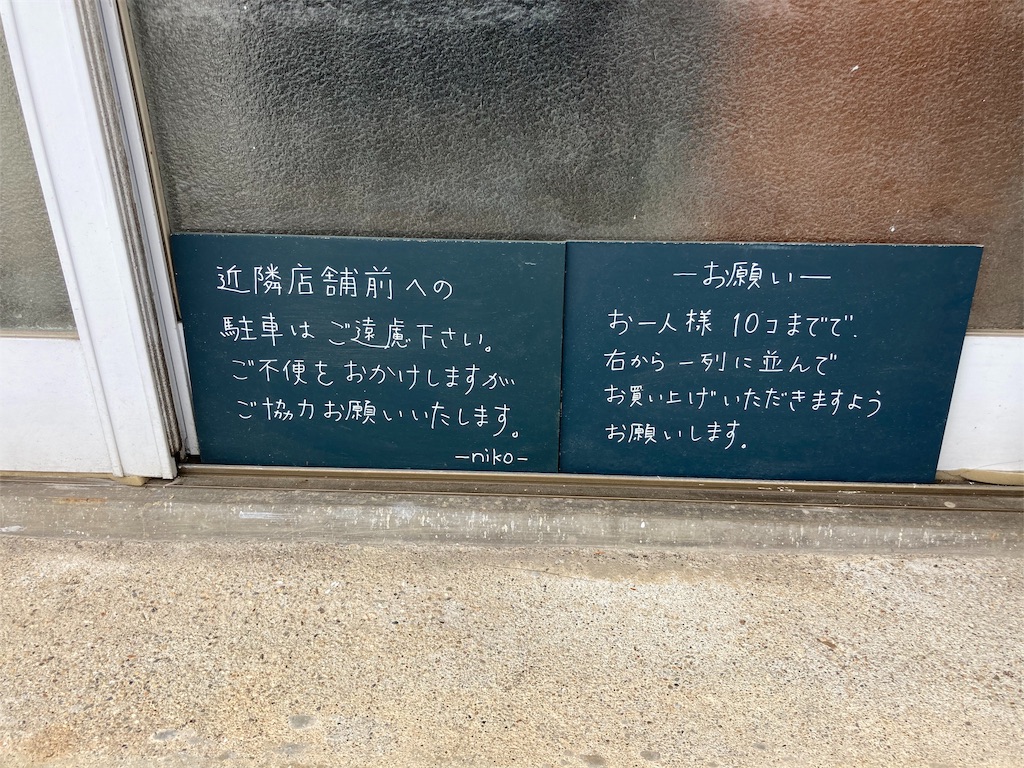 近隣店舗前への
駐車はご遠慮下さい。
ご不便をおかけしますが
ご協力お願いいたします。
-niko-
-お願い-
お一人様 10コまでで、
右から一列に並んで
お買い上げいただきますよう
お願いします。